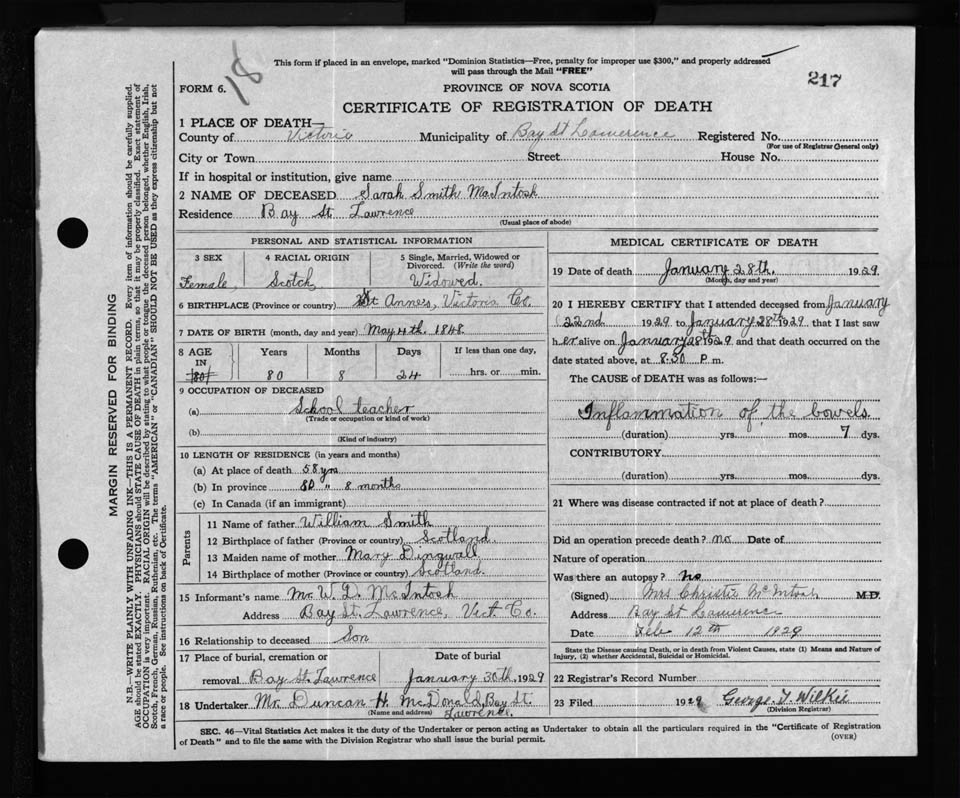 18
This form if placed in an envelope, marked "Dominion Statistics—Free, penalty for improper use $300," and properly addressed
will pass through the Mail "FREE"
217
FORM 6.
PROVINCE OF NOVA SCOTIA
CERTIFICATE OF REGISTRATION OF DEATH
1 PLACE OF DEATH—
County of Victoria Municipality of Bay St Lawerence Registered No.
(For use of Registrar General only)
City or Town Street House No.
If in hospital or institution, give name
2 NAME OF DECEASED Sarah Smith MacIntosh
Residence Bay St. Lawrence
(Usual place of abode)
PERSONAL AND STATISTICAL INFORMATION
3 SEX 4 RACIAL ORIGIN 5 Single, Married, Widowed or
Divorced. (Write the word)
Female, Scotch, Widowed.
6 BIRTHPLACE (Province or country) St Anne's, Victoria Co.
7 DATE OF BIRTH (month, day and year) May 4th. 1848.
8 AGE Years Months Days If less than one day,
IN
(80) 80 8 24 hrs. or min.
9 OCCUPATION OF DECEASED
(a) School teacher
(Trade or occupation or kind of work)
(b)
(Kind of industry)
10 LENGTH OF RESIDENCE (in years and months)
(a) At place of death 58 yrs
(b) In province 80 " 8 months
(c) In Canada (if an immigrant)
Parents
11 Name of father William Smith
12 Birthplace of father (Province or country) Scotland.
13 Maiden name of mother Mary Dingwall
14 Birthplace of mother (Province or country) Scotland.
15 Informant's name Mr. W. D. McIntosh
Address Bay St. Lawrence, Vict. Co.
16 Relationship to deceased Son
17 Place of burial, cremation or Date of burial
removal Bay St. Lawrence January 30th, 1929
18 Undertaker Mr. Duncan H. McDonald, Bay St.
(Name and address) Lawrence.
MEDICAL CERTIFICATE OF DEATH
19 Date of death January 28th, 1929
(Month, day and year)
20 I HEREBY CERTIFY that I attended deceased from January
22nd 1929 to January 28th 1929, that I last saw
her alive on January 28th 1929 and that death occurred on the
date stated above, at 8.30 P. m.
The CAUSE of DEATH was as follows:—
Inflammation of the bowels.
(duration) yrs. mos. 7 dys.
CONTRIBUTORY.
(duration) yrs. mos. dys.
21 Where was disease contracted if not at place of death?
Did an operation precede death? no Date of
Nature of operation
Was there an autopsy? no
(Signed) Mrs Christie McIntosh M.D.
Address Bay St Lawerence
Date Feb 12th 1929
State the Disease causing Death, or in death from Violent Causes, state (1) Means and Nature of
Injury, (2) whether Accidental, Suicidal or Homicidal.
22 Registrar's Record Number
23 Filed 1929 George T. Wilkie
(Division Registrar)
SEC. 46—Vital Statistics Act makes it the duty of the Undertaker or person acting as Undertaker to obtain all the particulars required in the "Certificate of Registration
of Death" and to file the same with the Division Registrar who shall issue the burial permit. (OVER)
MARGIN RESERVED FOR BINDING
N.B.—WRITE PLAINLY WITH UNFADING INK—THIS IS A PERMANENT RECORD. Every item of information should be carefully supplied.
AGE should be stated EXACTLY. PHYSICIANS should STATE CAUSE OF DEATH in plain terms, so that it may be properly classified. Exact statement of
OCCUPATION is very important. RACIAL ORIGIN will be described by stating to what people or tongue the deceased person belonged, whether English, Irish,
Scotch, French, German, Russian, Ruthenian, etc. The terms "AMERICAN" or "CANADIAN" SHOULD NOT BE USED as they express citizenship but not
a race or people. See instructions on back of Certificate.